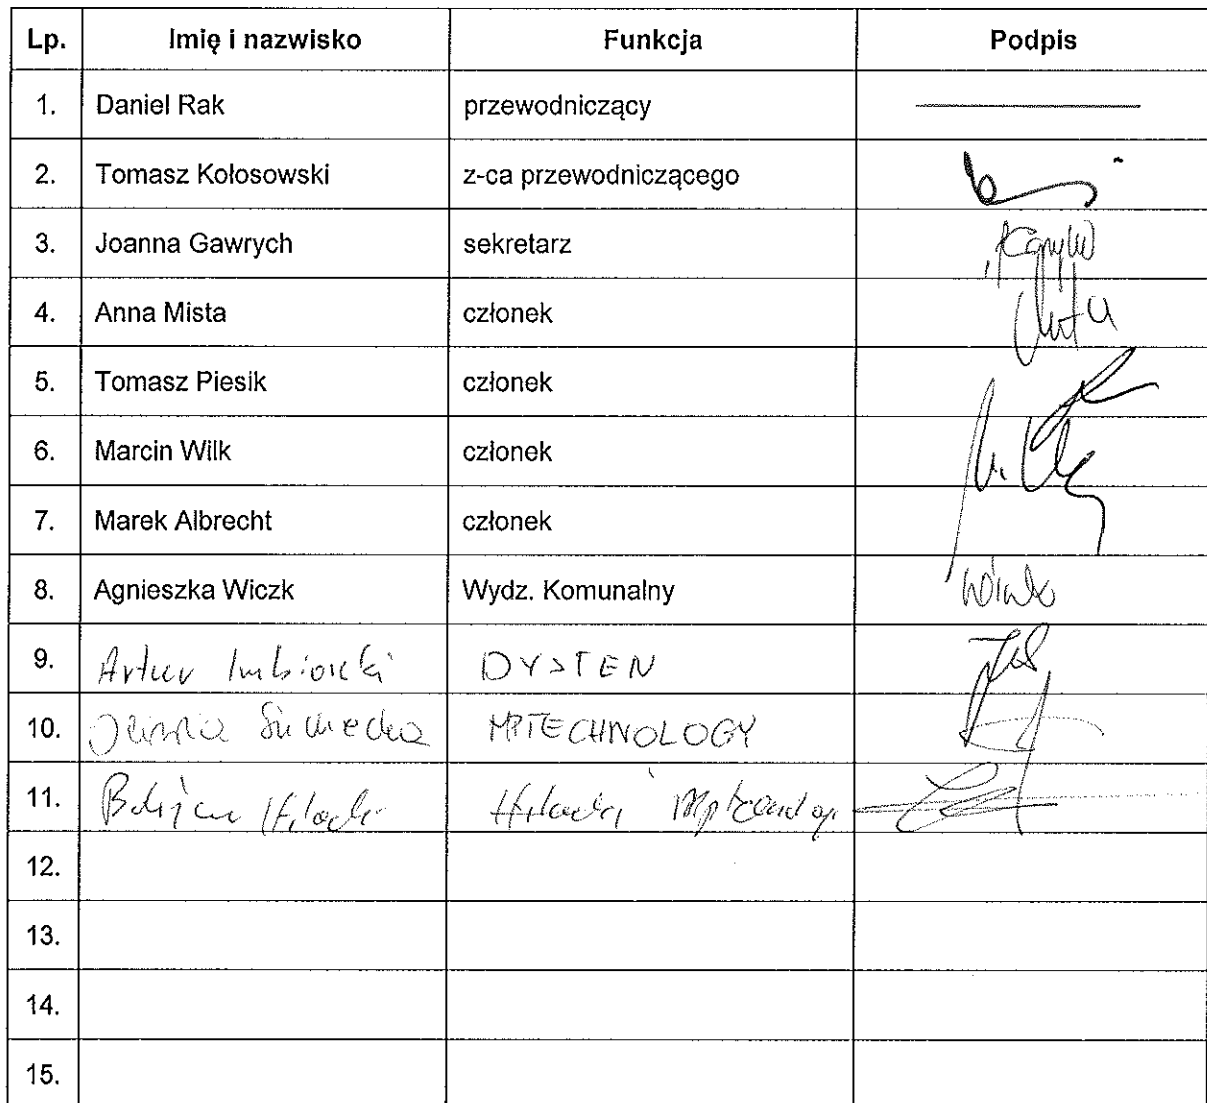 Lp. Imię i nazwisko Funkcja Podpis
1. Daniel Rak przewodniczący
2. Tomasz Kołosowski z-ca przewodniczącego
3. Joanna Gawrych sekretarz
4. Anna Mista członek
5. Tomasz Piesik członek
6. Marcin Wilk członek
7. Marek Albrecht członek
8. Agnieszka Wiczk Wydz. Komunalny
9. Artur DYSTEN
10. MPTECHNOLOGY
11.
12.
13.
14.
15.